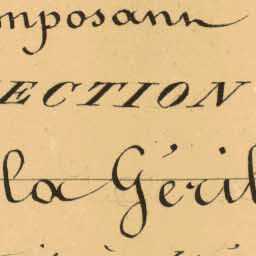 mposann
ECTION
la Géril